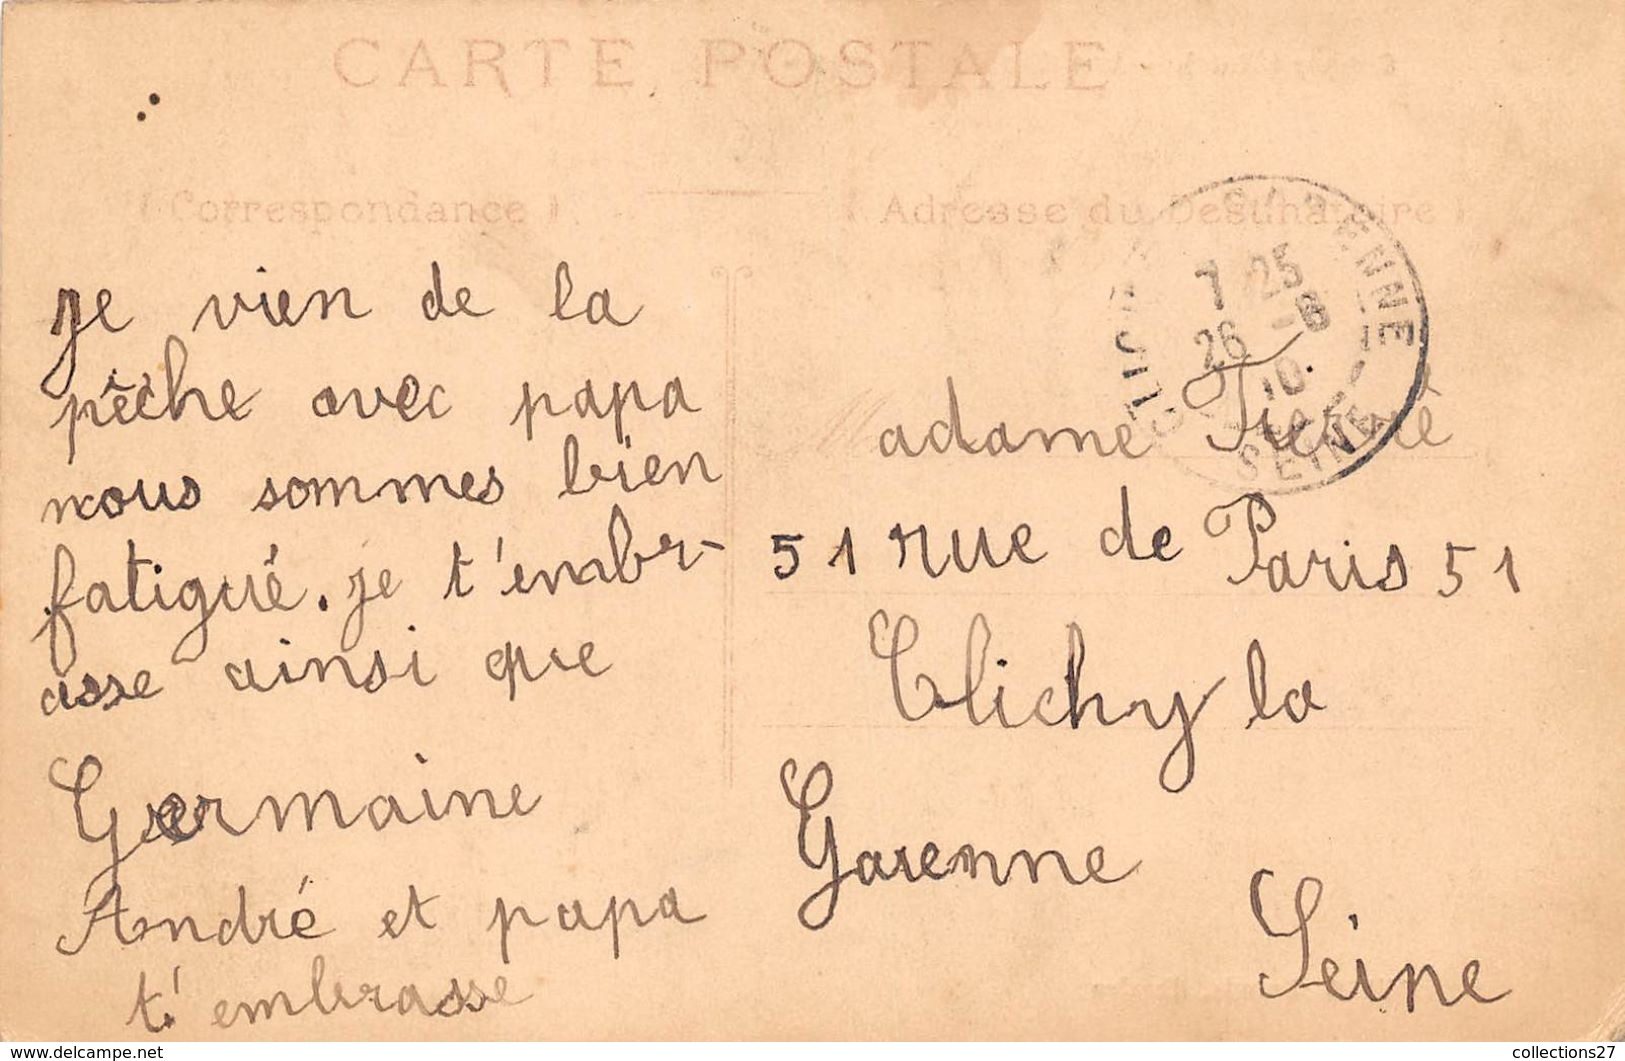 CARTE POSTALE
Correspondance
Adresse du Destinataire
je vien de la
pêche avec papa
nous sommes bien
fatigué. je t'embr-
asse ainsi que
Germaine
André et papa
t'embrasse
GARENNE
7 25
26 -8
10
SEINE
adame
51 rue de Paris 51
Clichy la
Garenne
Seine
collections27